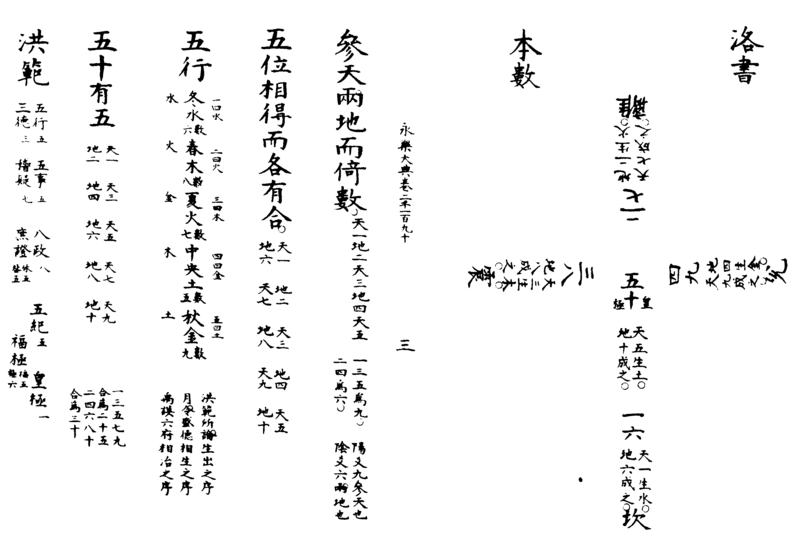 洛書
離
天七成之
地二生火
二七
兌
地四生金
天九成之
四九
五十
皇極
天五生土
地十成之
三八
天三生木
地八成之
震
一六
天一生水
地六成之
坎
本數
三
參天兩地而倚數
天一地二天三地四天五
一三五為九
二四為六
陽爻九參天也
陰爻六兩地也
五位相得而各有合
天一 地二 天三 地四 天五
地六 天七 地八 天九 地十
五行
一曰水 二曰火 三曰木 四曰金 五曰土
冬水數六 春木數八 夏火數七 中央土數五 秋金數九
水 火 金 木 土
洪範所論生出之序
月令盛德相生之序
禹謨六府相治之序
五十有五
天一 天三 天五 天七 天九
地二 地四 地六 地八 地十
一三五七九
合為二十五
二四六八十
合為三十
洪範
五行五 五事五 八政八 五紀五 皇極一
三德三 稽疑七 庶證休五咎五 福極福五極六